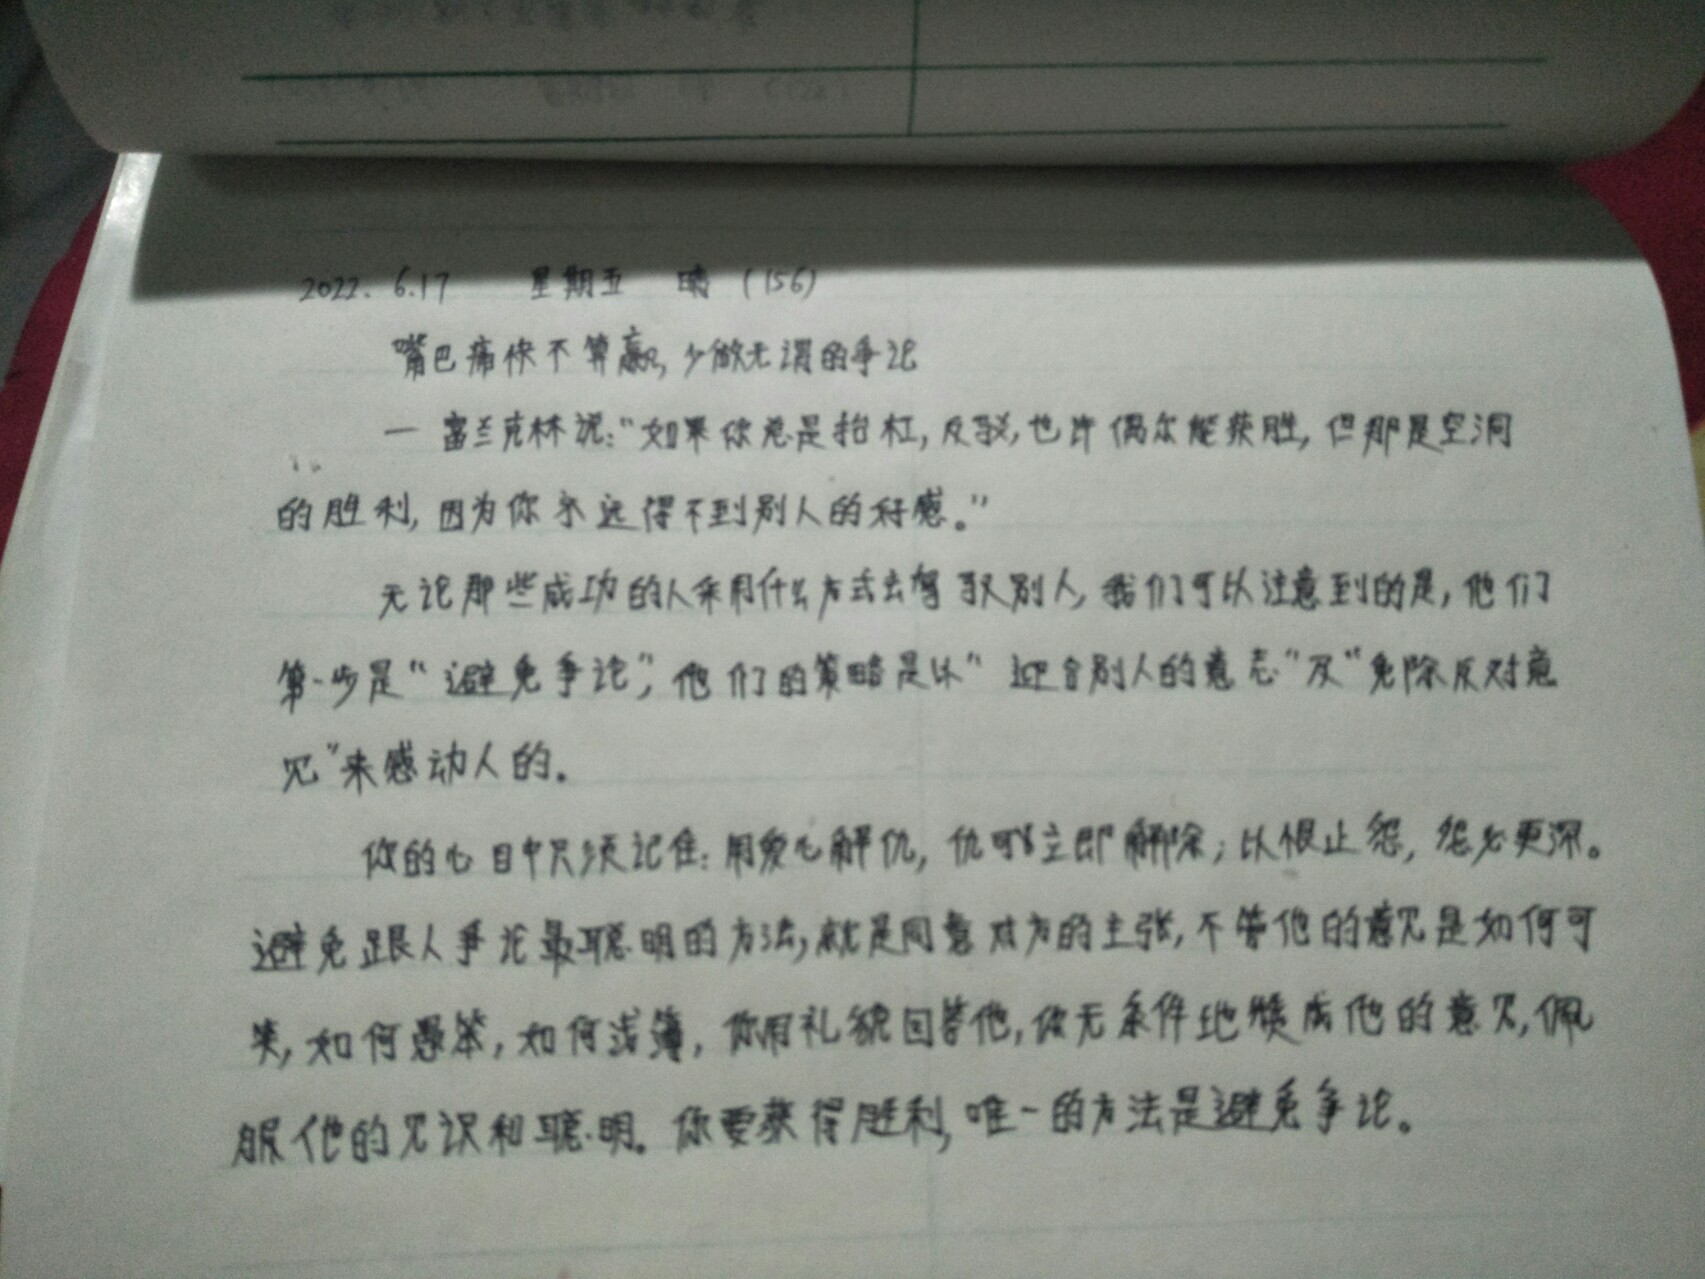 2022. 6.17 星期五 晴 (156)
嘴巴痛快不算赢,少做无谓的争论
一 富兰克林说:“如果你总是抬杠,反驳,也许偶尔能获胜,但那是空洞
的胜利,因为你永远得不到别人的好感。”
无论那些成功的人采用什么方式去驾驭别人,我们可以注意到的是,他们
第一步是“避免争论”,他们的策略是以“迎合别人的意志”及“免除反对意
见”来感动人的。
你的心目中只须记住:用爱心解仇,仇可以立即解除;以恨止怨,怨必更深。
避免跟人争论最聪明的方法,就是同意对方的主张,不管他的意见是如何可
笑,如何愚笨,如何浅薄,你用礼貌回答他,你无条件地赞成他的意见,佩
服他的见识和聪明。你要获得胜利,唯一的方法是避免争论。